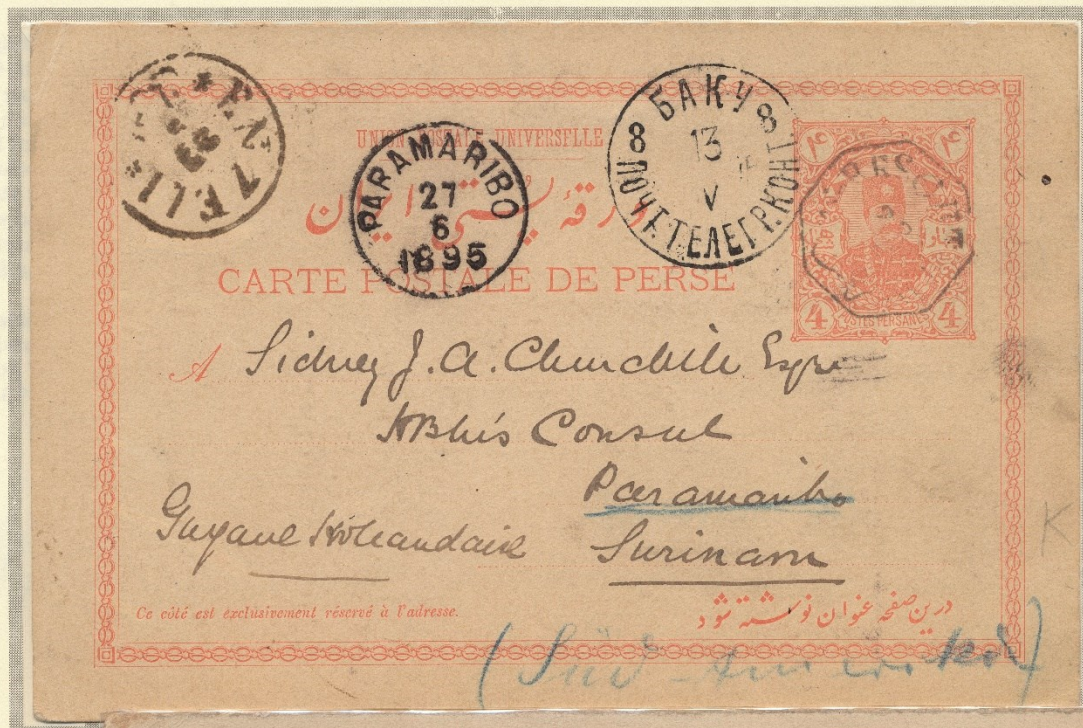 UNION POSTALE UNIVERSELLE
ورقهٔ پستی ایران
CARTE POSTALE DE PERSE
ENZELI
PARAMARIBO
27
6
1895
БАКУ
8 13 8
V
ПОЧТ.ТЕЛЕГР.КОНТ
۴ ۴
4 POSTES PERSANES 4
A Sidney J. A. Churchill Esqre
HBM's Consul
Paramaribo
Guyane Hollandaise Surinam
Ce côté est exclusivement réservé à l'adresse.
درین صفحه عنوان نوشته شود
(Süd Amerika)
K